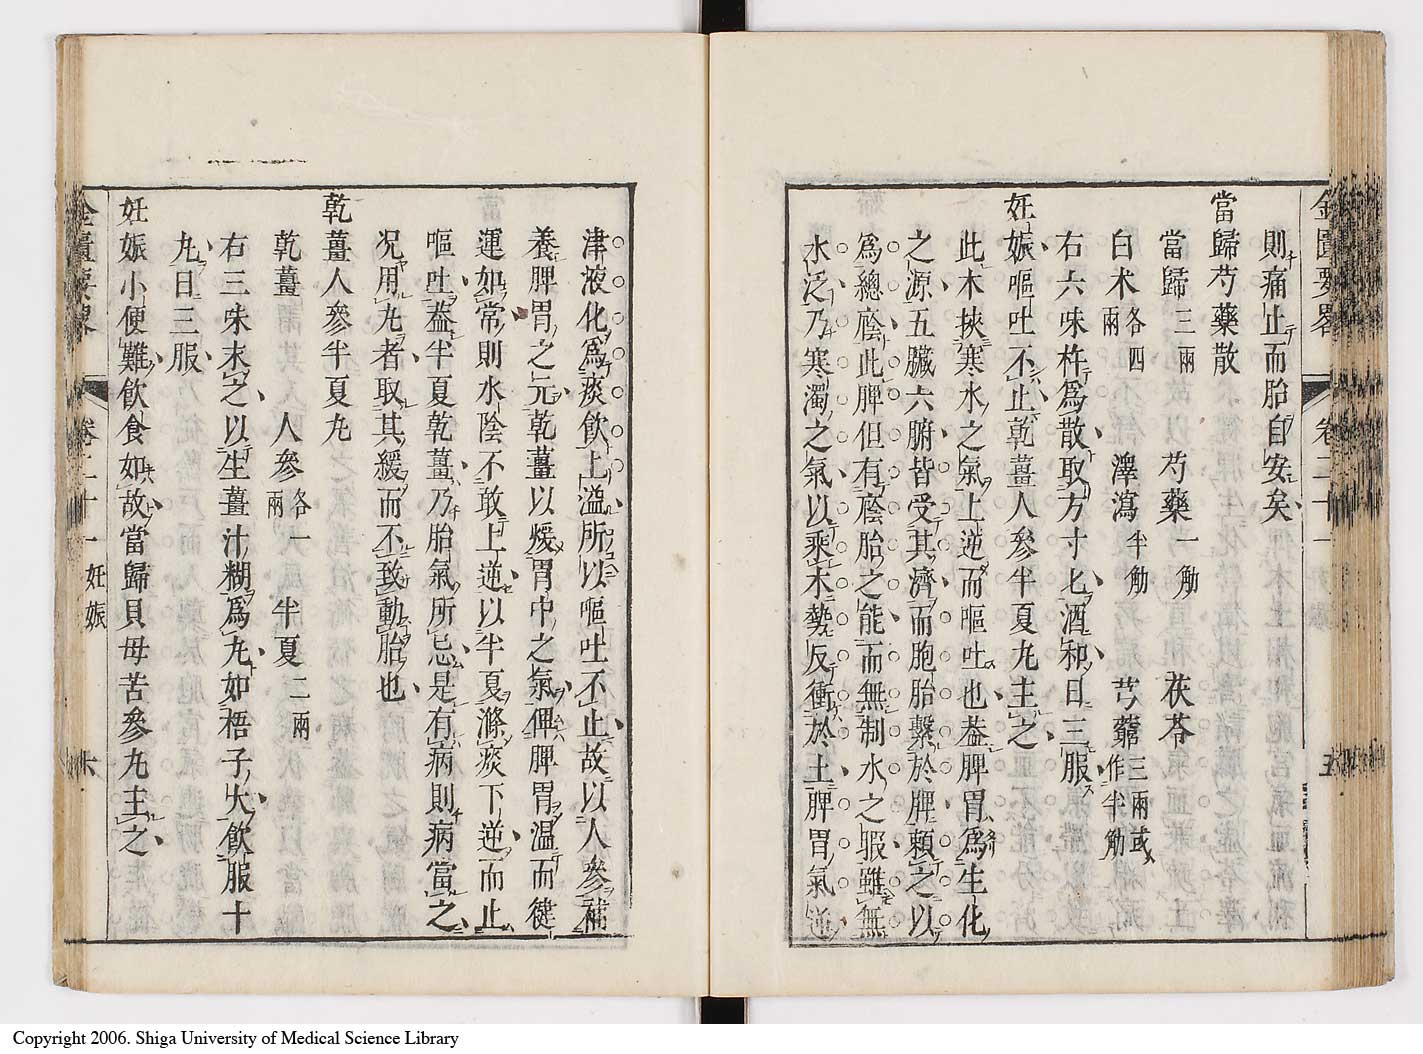 金匱要畧 卷二十一 五
則痛止而胎自安矣
當歸芍藥散
當歸三兩 芍藥一觔 茯苓
白朮各四兩 澤瀉半觔 芎藭三兩或作半觔
右六味杵爲散取方寸匕酒和日三服
妊娠嘔吐不止乾薑人參半夏丸主之
此木挾寒水之氣上逆而嘔吐也葢脾胃爲生化
之源五臟六腑皆受其濟而胞胎繫於脾賴之以
爲總廕此脾但有廕胎之能而無制水之暇雖無
水泛乃寒濁之氣以乘木勢反衝於土脾胃氣逆
津液化爲痰飲上溢所以嘔吐不止故以人參補
養脾胃之元乾薑以煖胃中之氣俾脾胃温而健
運如常則水陰不敢上逆以半夏滌痰下逆而止
嘔吐葢半夏乾薑乃胎氣所忌是有病則病當之
况用丸者取其緩而不致動胎也
乾薑人參半夏丸
乾薑 人參各一兩 半夏二兩
右三味末之以生薑汁糊爲丸如梧子大飲服十
丸日三服
妊娠小便難飲食如故當歸貝母苦參丸主之
金匱要畧 卷二十一 妊娠 六
Copyright 2006. Shiga University of Medical Science Library